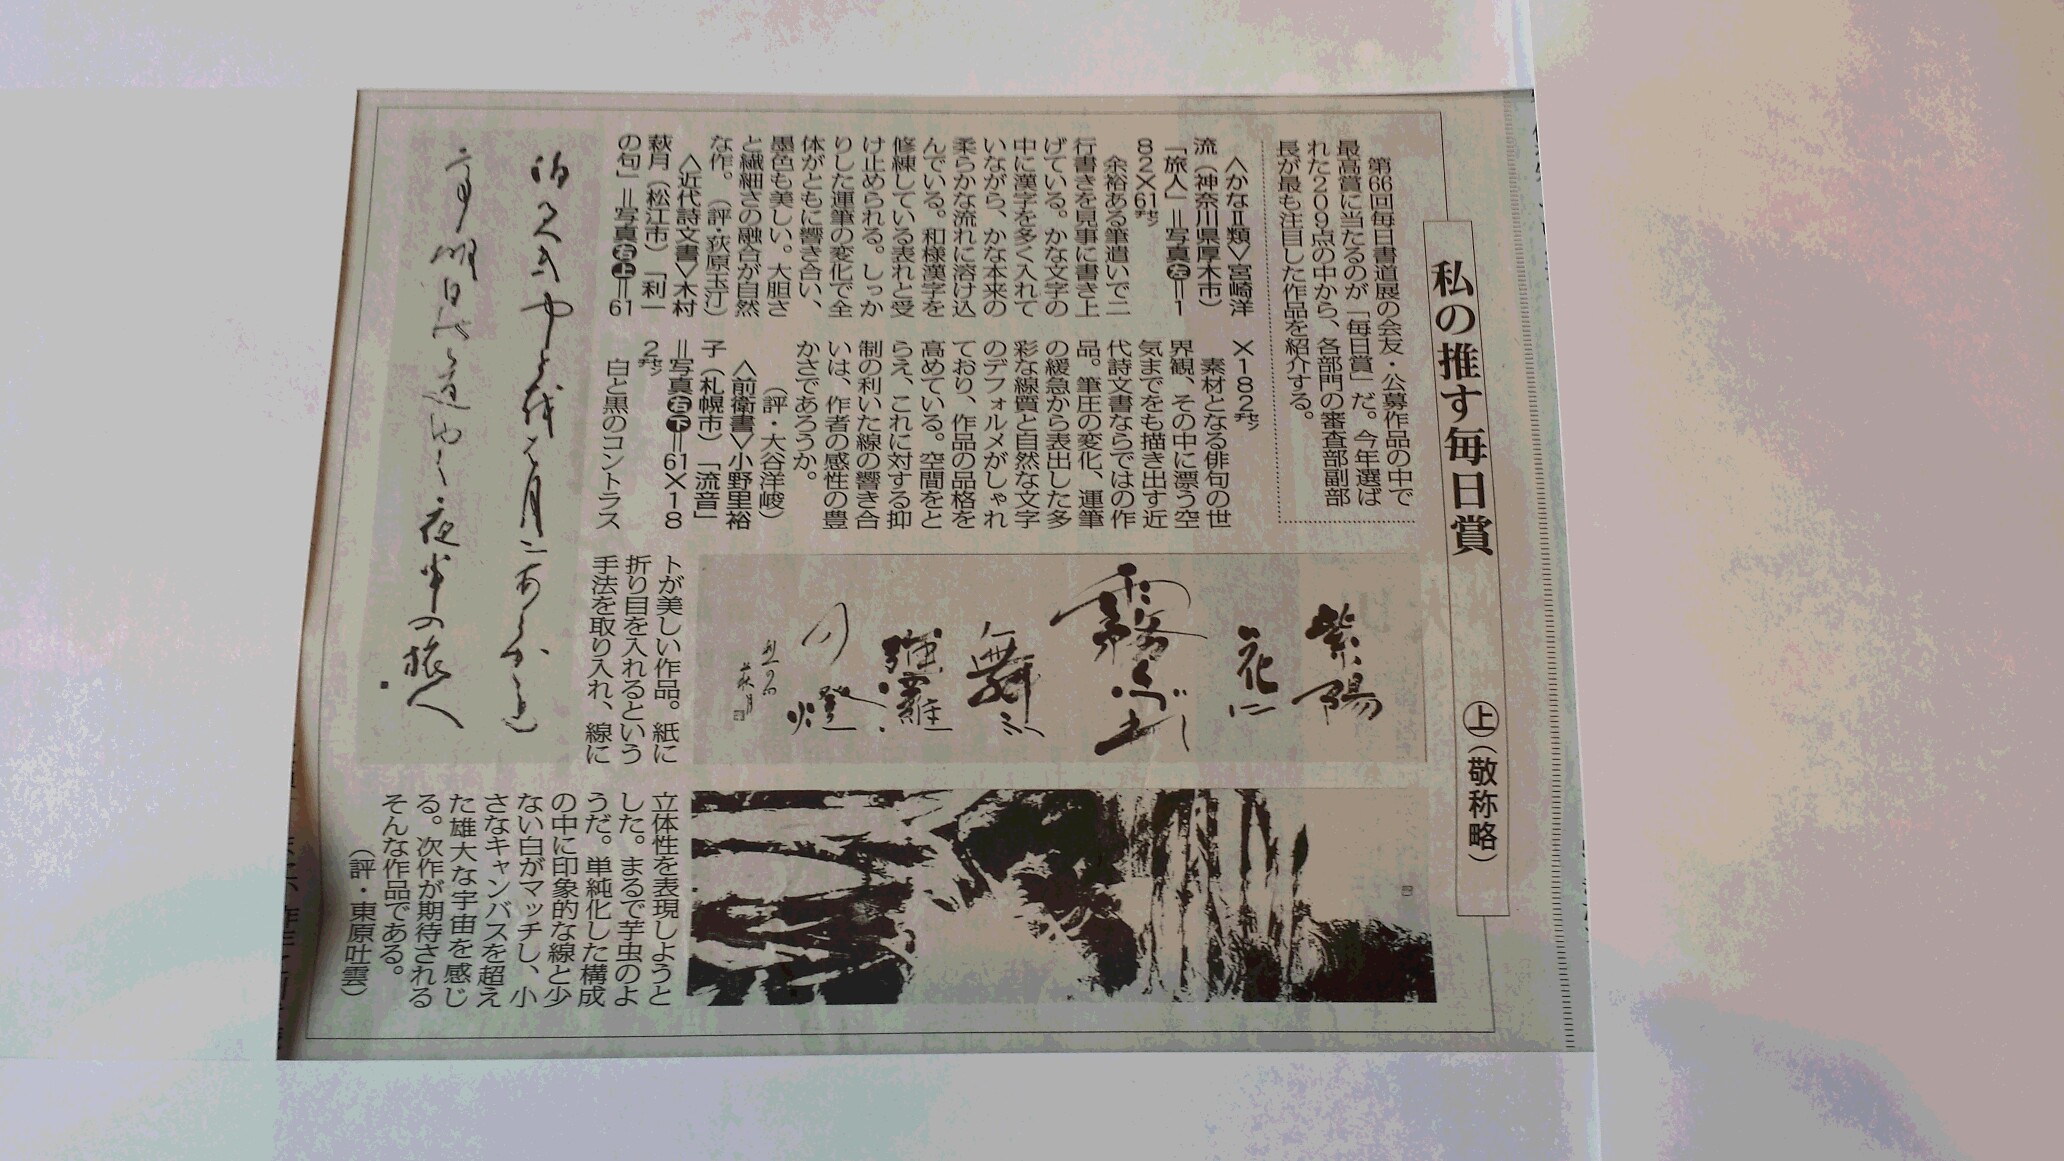 私の推す毎日賞
上(敬称略)
第66回毎日書道展の会友・公募作品の中で
最高賞に当たるのが「毎日賞」だ。今年選ば
れた209点の中から、各部門の審査部副部
長が最も注目した作品を紹介する。
〈かなⅡ類〉宮崎洋
流(神奈川県厚木市)
「旅人」=写真左=1
82×61㌢
余裕ある筆遣いで二
行書きを見事に書き上
げている。かな文字の
中に漢字を多く入れて
いながら、かな本来の
柔らかな流れに溶け込
んでいる。和様漢字を
修練している表れと受
け止められる。しっか
りした運筆の変化で全
体がともに響き合い、
墨色も美しい。大胆さ
と繊細さの融合が自然
な作。(評・荻原玉汀)
〈近代詩文書〉木村
萩月(松江市)「利一
の句」=写真右上=61
×182㌢
素材となる俳句の世
界観、その中に漂う空
気までをも描き出す近
代詩文書ならではの作
品。筆圧の変化、運筆
の緩急から表出した多
彩な線質と自然な文字
のデフォルメがしゃれ
ており、作品の品格を
高めている。空間をと
らえ、これに対する抑
制の利いた線の響き合
いは、作者の感性の豊
かさであろうか。
(評・大谷洋峻)
〈前衛書〉小野里裕
子(札幌市)「流音」
=写真右下=61×18
2㌢
白と黒のコントラス
トが美しい作品。紙に
折り目を入れるという
手法を取り入れ、線に
立体性を表現しようと
した。まるで芋虫のよ
うだ。単純化した構成
の中に印象的な線と少
ない白がマッチし、小
さなキャンバスを超え
た雄大な宇宙を感じ
る。次作が期待される
そんな作品である。
(評・東原吐雲)
紫陽
花に
霧ふ
舞
彌
の燈
萩月
夜半の旅人